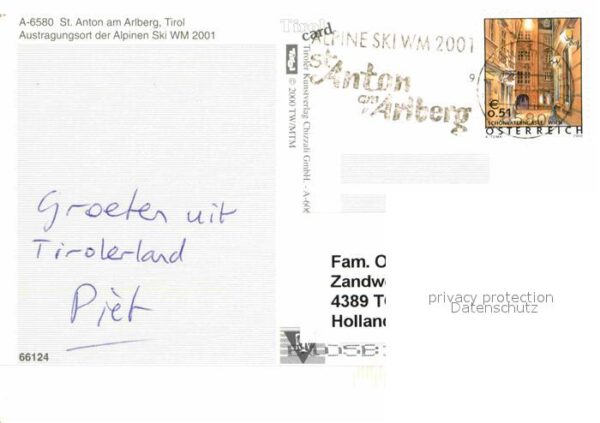 A-6580 St. Anton am Arlberg, Tirol
Austragungsort der Alpinen Ski WM 2001
Groeten uit
Tirolerland
Piet
66124
Tirol
card
Tirol
© 2000 TW/MTM
Tiroler Kunstverlag Chizzali GmbH. - A-606
ALPINE SKI WM 2001
St.
Anton
am
Arlberg
€
0.51
SCHÖNLATERNGASSE, WIEN
ÖSTERREICH
Fam. O
Zandwe
4389 T
Holland
privacy protection
Datenschutz